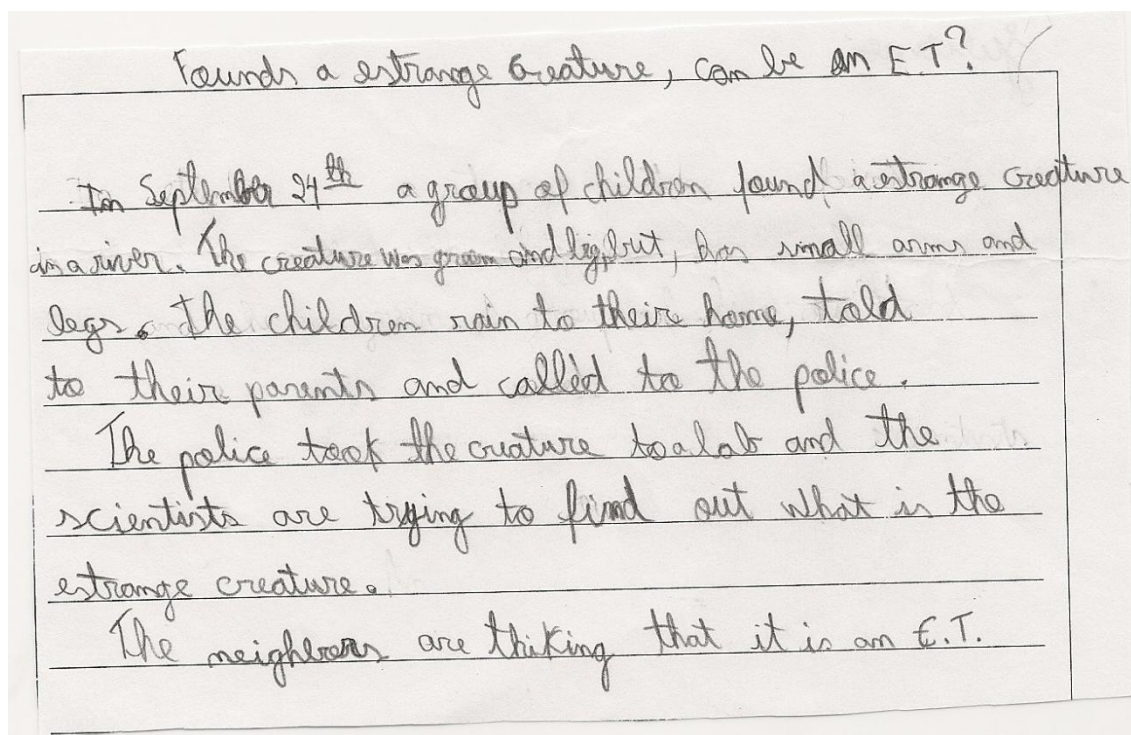 Founds a estrange Creature, can be an E.T?
In September 24th a group of children found a estrange creature
in a river. The creature was green and big, but, has small arms and
legs. The children rain to theire home, told
to their parents and called to the police.
The police took the creature to a lab and the
scientists are trying to find out what is the
estrange creature.
The neighbors are thiking that it is an E.T.